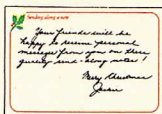 Sending along a note
Your friends will be
happy to receive personal
messages from you on these
greeting send-along notes!
Merry Christmas
Joan